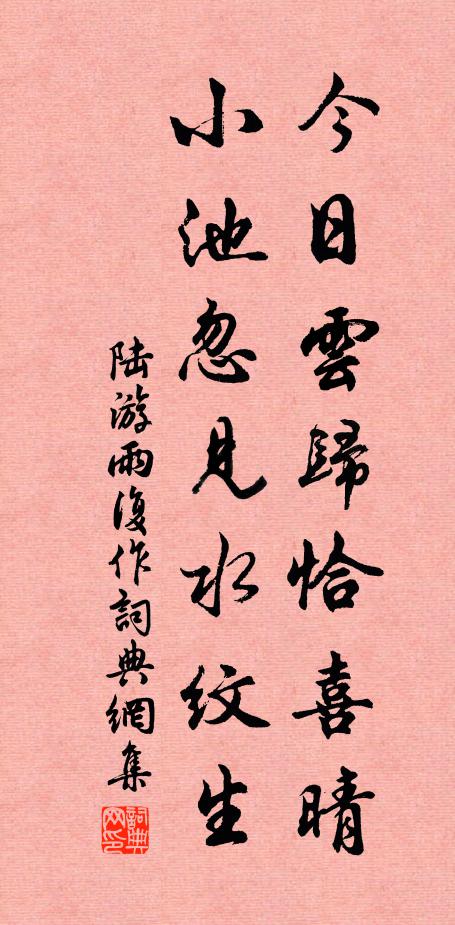 今日雲歸恰喜晴
小池忽见水紋生
陆游雨復作詞典網集
詞典网印